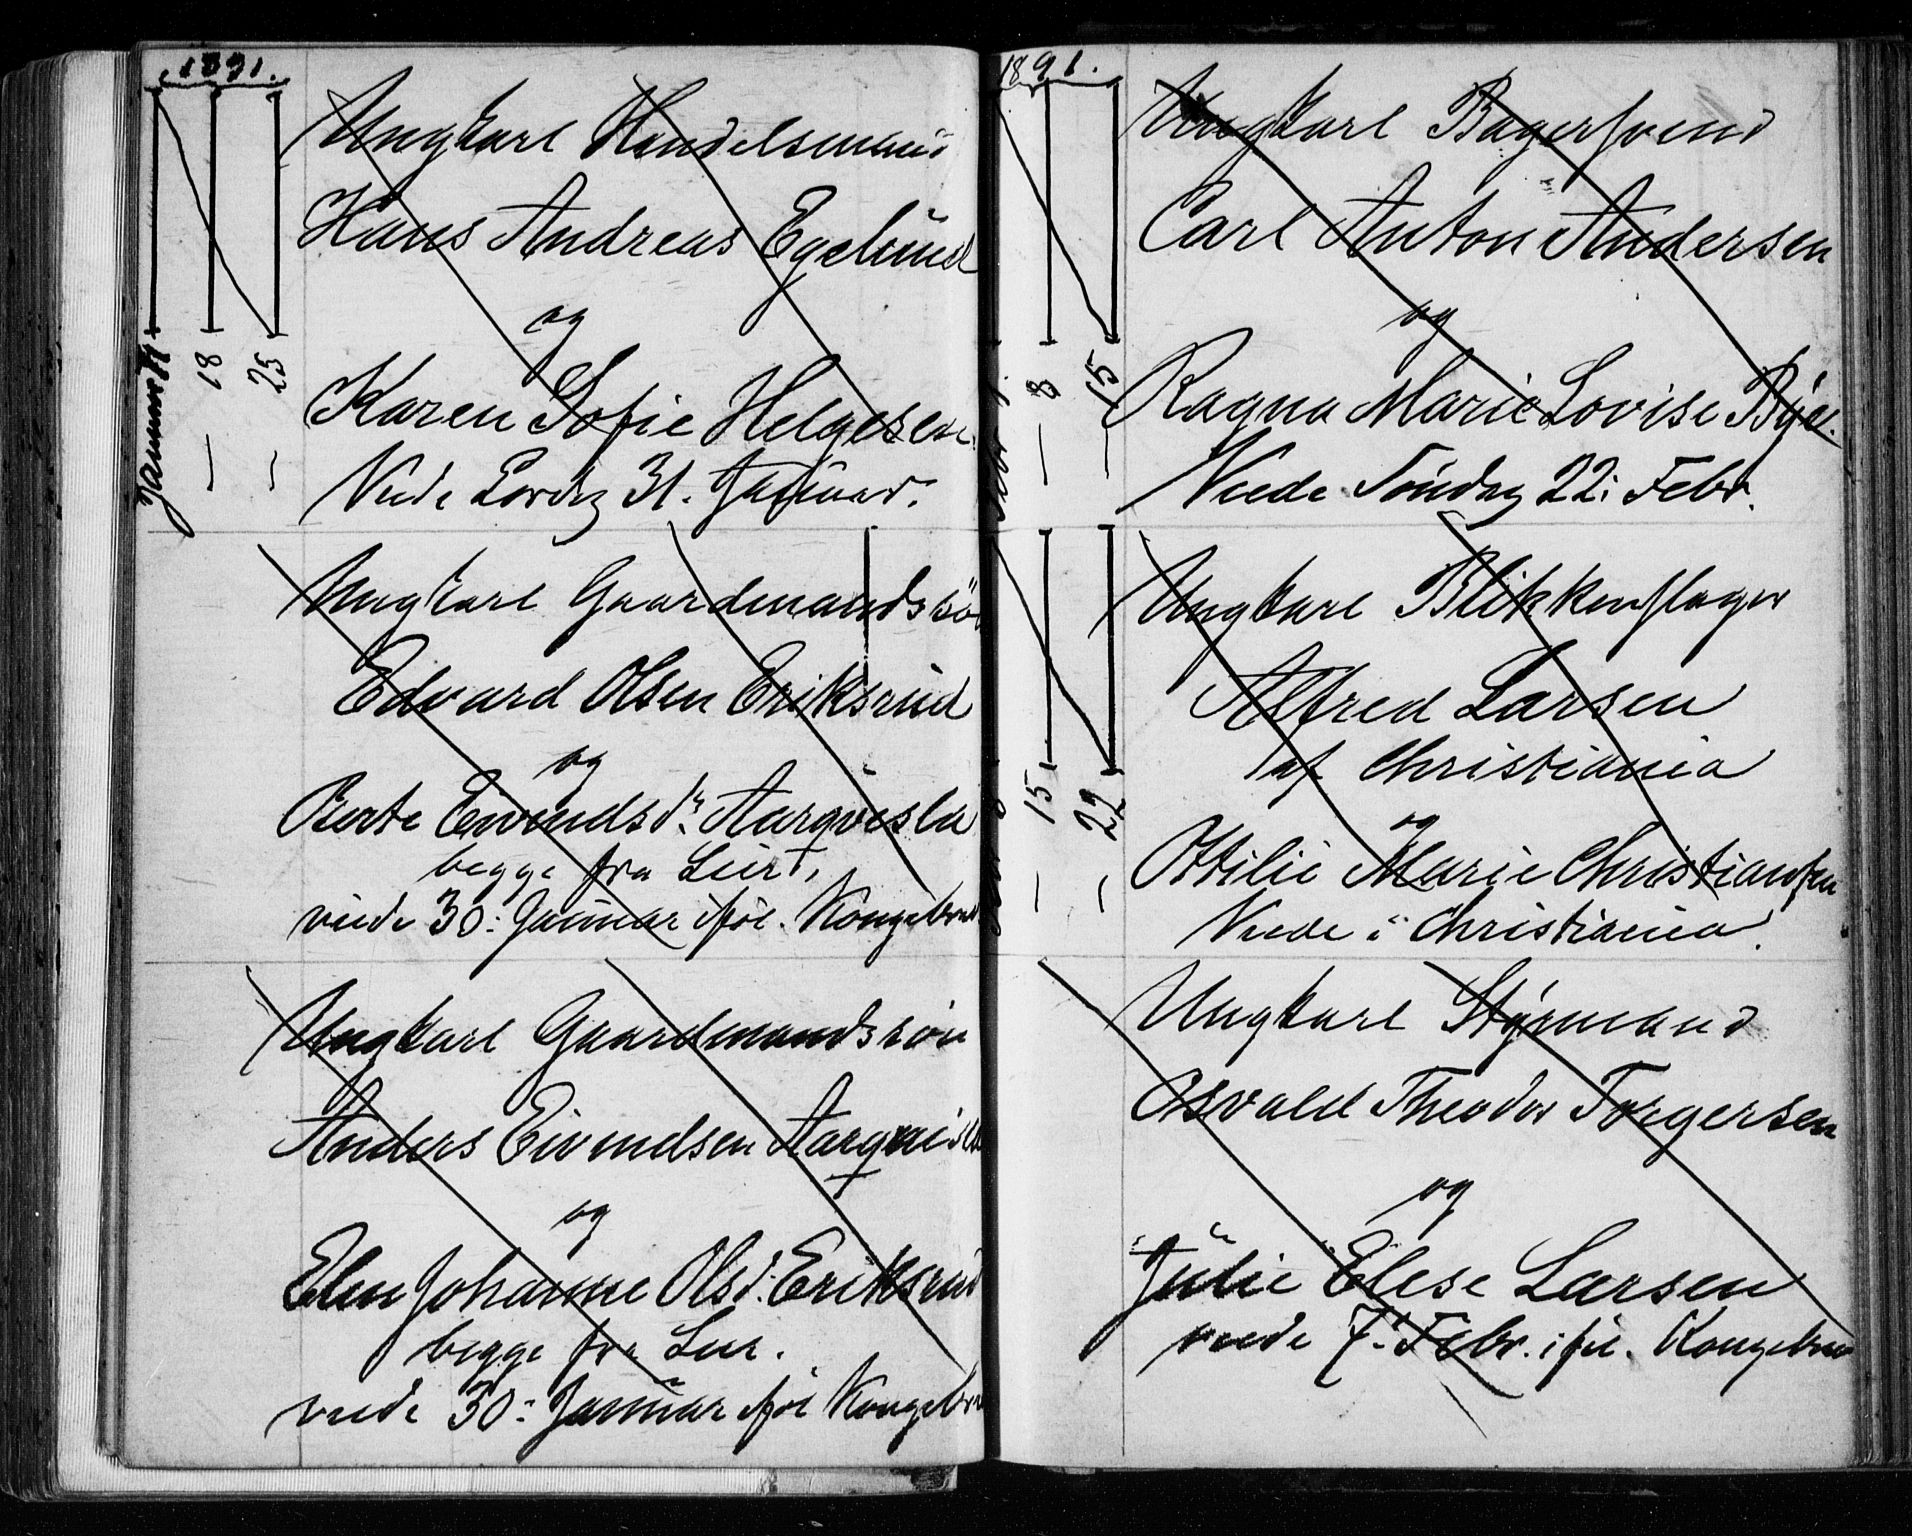 1891.
Ungkarl Handelsmand
Hans Andreas Egelund
og
Karen Sofie Helgesen.
Viede Lørdag 31. Januar.
Januar 11
— 18
— 25
Ungkarl Gaardmandssön
Edvard Olsen Eriksrud
og
Berte Eivindsdr. Aarqvisla
begge fra Lier,
viede 30: Januar iføl. Kongebrev
Ungkarl Gaardmandssön
Anders Eivindsen Aarqvisla
og
Elen Johanne Olsd. Eriksrud
begge fra Lier.
viede 30: Januar iføl Kongebrev
1891.
Ungkarl Bagersvend
Carl Anton Andersen
og
Ragna Marie Lovise Bye.
Viede Söndag 22: Febr.
Febr. 1
— 8
— 15
Ungkarl Blikkenslager
Alfred Larsen
af Christiania
og
Ottilie Marie Christiansen
Viede i Christiania.
— 15
— 22
Ungkarl Styrmand
Osvald Theodor Torgersen
og
Julie Elese Larsen
viede 7. Febr. iføl. Kongebrev